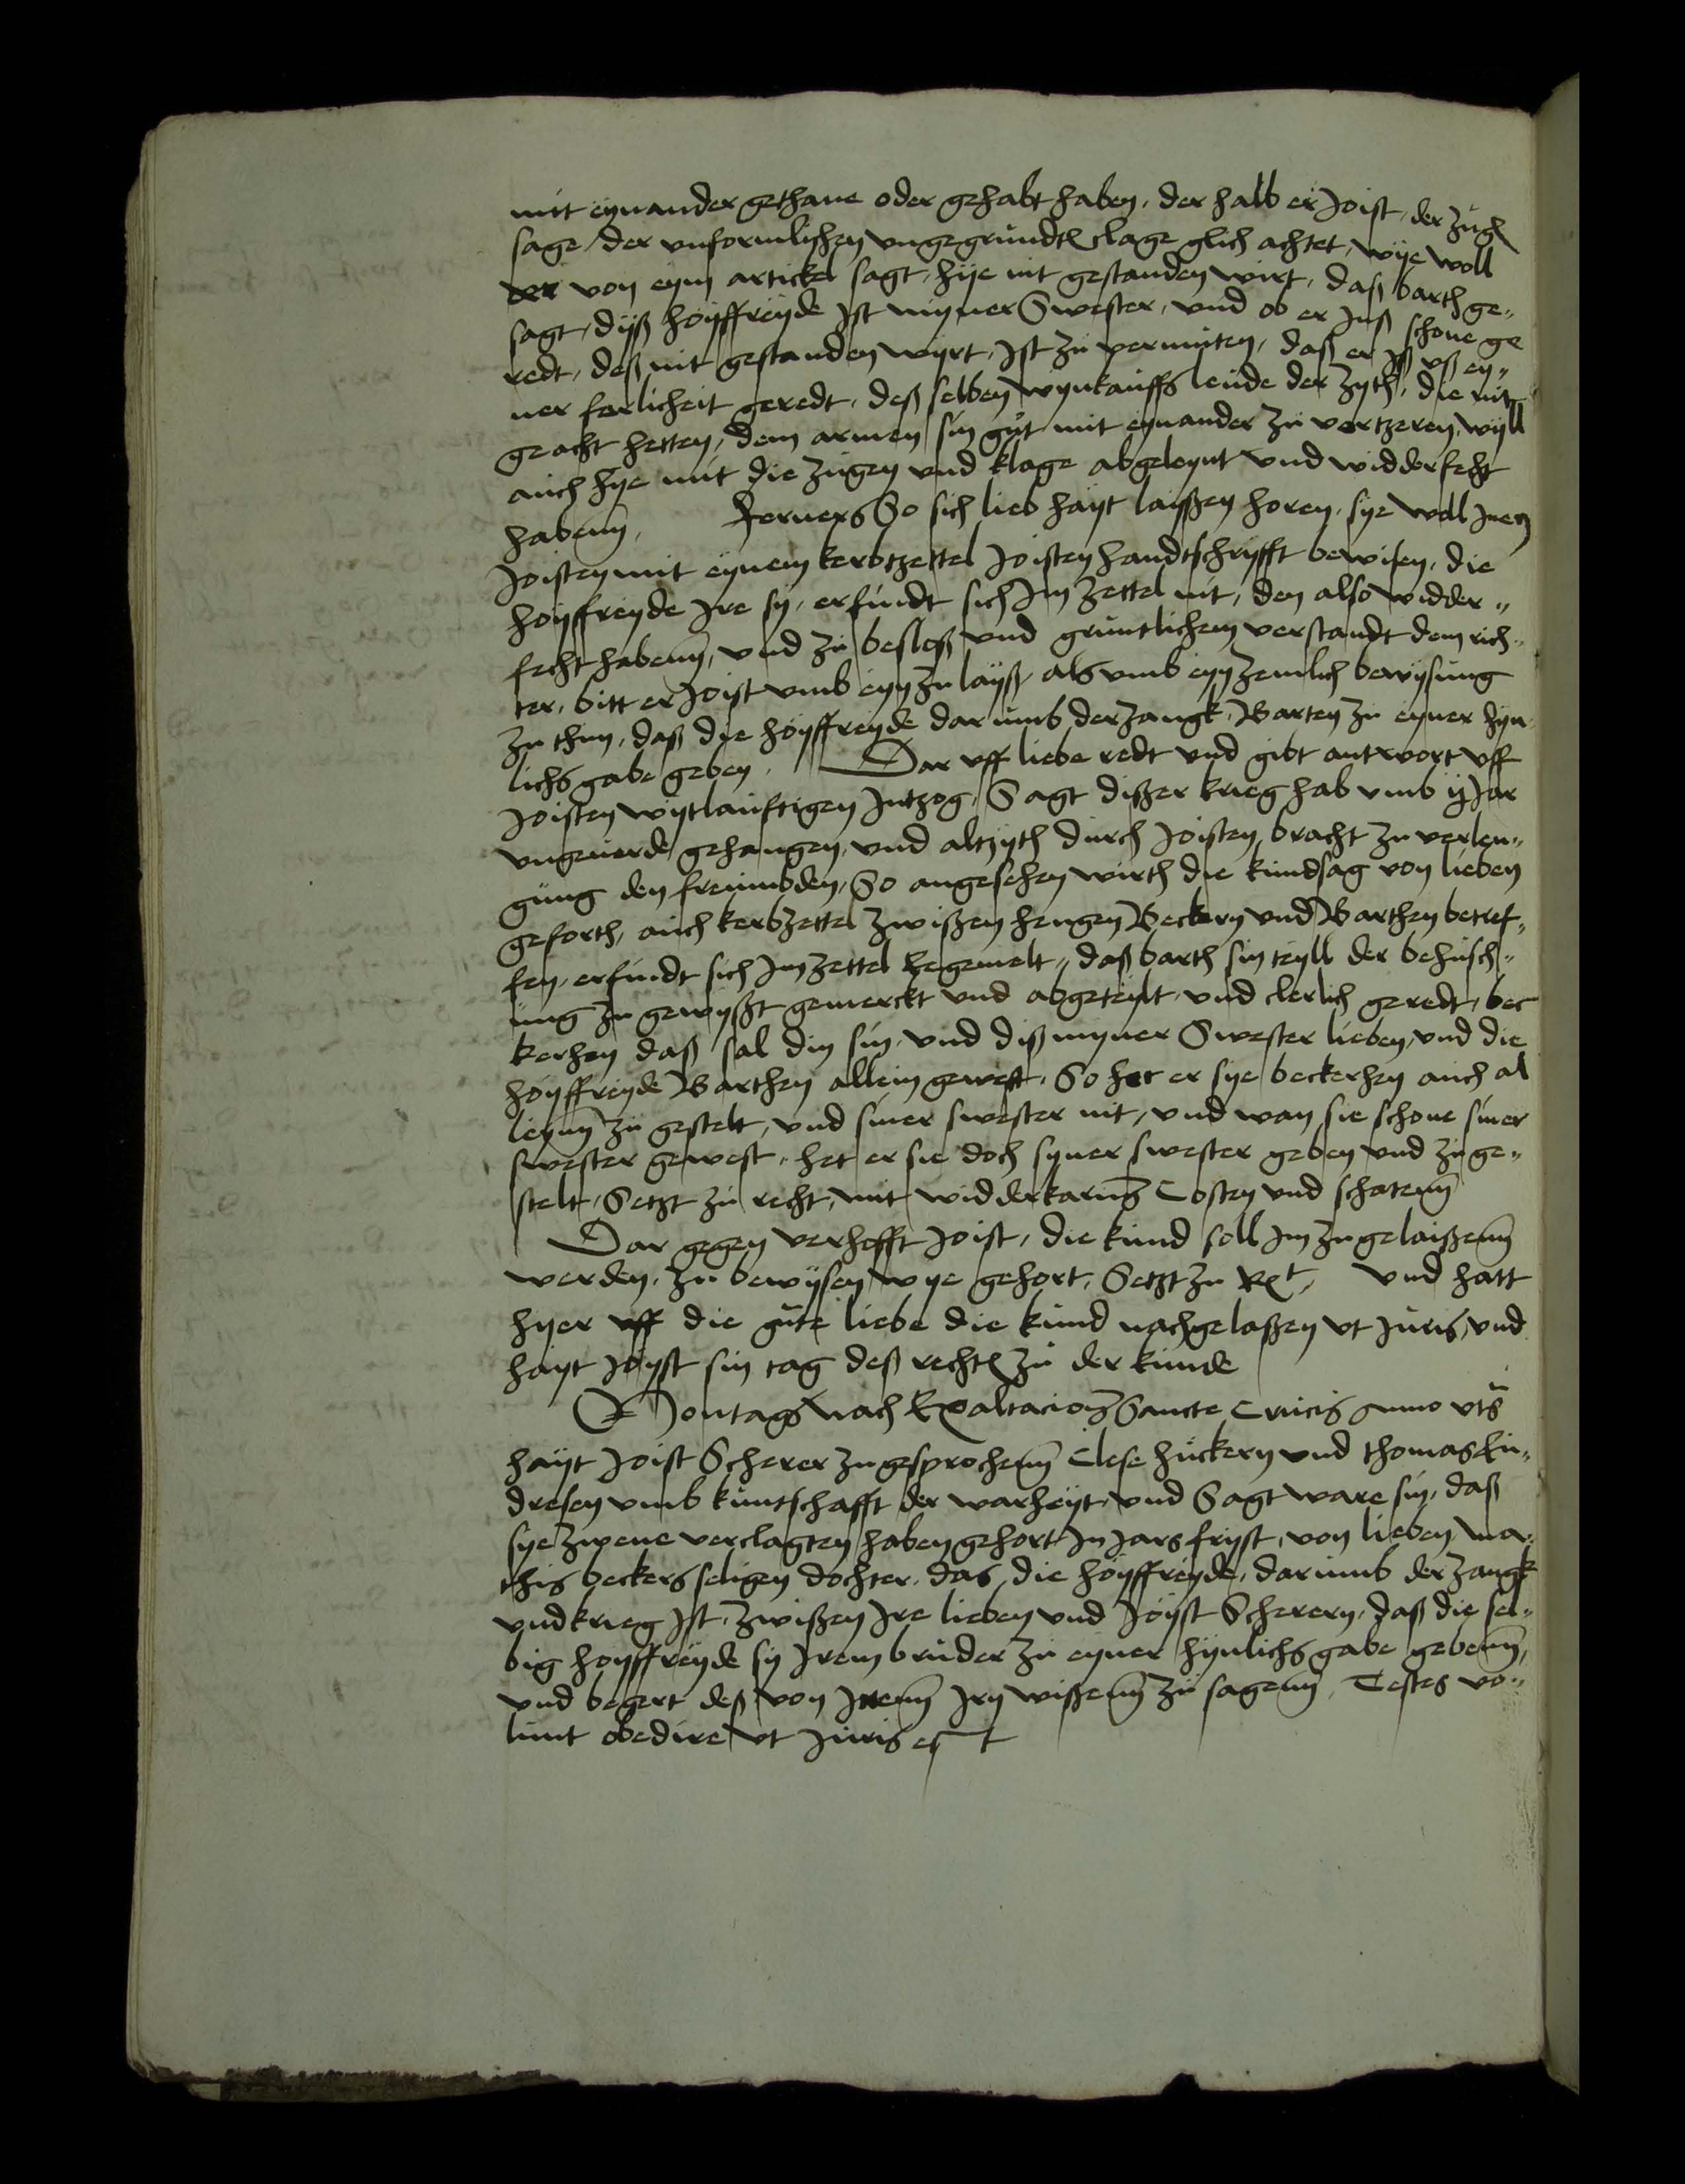 mit eynander gethane oder gehabt haben, der halb er Joist, der zugen
sage, der unformlichen ungegrundten clage glich achtet, wye woll
der von eym artickel sagt, hye nit gestanden wirt, daß barth ge„
sagt, dyß hoyffreyde Ist myner Swester, und ob er Inß schone ge
redt, deß nit gestanden wyrt, Ist zu vermuten, daß er Iß uß ey„
ner farlicheit geredt, deß selben wynkauffs leude der zyth, die nit
geacht hetten, dem armen sin gut mit eynander zu vertzeren, wyll
auch hye mit die zugen und klage abgeleynt und widderfecht
habenn, Ferners So sich lieb hayt laißen horen, sye woll
Joisten mit eynem kerbtzettel Joisten handtschryfft bewisen, die
hoyffreyde Ire sy, erfindt sich Im zettel nit, den also widder„
fecht habenn, und zu besloß und gruntlichem verstandt dem rich„
ter, bitt er Joist umb eyn zulayß, als umb eyn zemlich bewysung
zu thun, daß die hoyffreyde dar umb der zangk, Barten zu eyner hyn„
lichs gabe geben, Dar uff liebe redt und gibt antwort uff
Joisten wytlauftigen Intzog, Sagt dißer krieg hab umb ij Jar
ungeuerde gehangen, und altzyth durch Joisten bracht zu verlen„
gung den freumbden, So angesehen wirth die kundsag von lieben
geforth, auch kerbzettel zwißen hengen Beckern und Barthen betref„
fen, erfindt sich Im zettel hegemelt, daß barth sin teyll der behusch„
ung zu gewyßt gemerckt und abgeteylt, und clerlich geredt, bec
kerhen daß sal din sin, und diß myner Swester lieben, und die
hoyffreyde Barthen allein gewest, So het er sye beckerhen auch al
leynn zu gestelt, und siner swester nit, und wan sie schone siner
swester gewest, het er sie doch syner swester geben und zu ge„
stelt, Setzt zu recht, mit widderkarung Costen und schatenn
Dar gegen verhofft Joist, die kund soll Im zu gelaißenn
werden, zu bewysen wye gehort, Setzt zu Rt, und hatt
hyer uff die gute liebe die kund nachgelaßen ut Juris, und
hayt Joyst sin tag deß rechten zu der kunde
Montags nach Exaltacionis Sancte Crucis Anno uts
hayt Joist Scherer zu gesprochenn Clese huckern und thomas En„
dresen umb kuntschafft der warheyt, und Sagt ware sin, daß
sye zwene verclagten haben gehort In Jars fryst, von lieben ma„
this beckers seligen dochter, das die hoyffreyde, dar umb der zangk
und krieg Ist, zwißen Ire lieben und Joyst Scherern, daß die sel„
big hoyffreyde sy Irem bruder zu eyner hynlichs gabe gebenn,
und begert deß von Inenn Irn wißenn zu sagenn, Testes vo„
lunt obedire ut Juris est